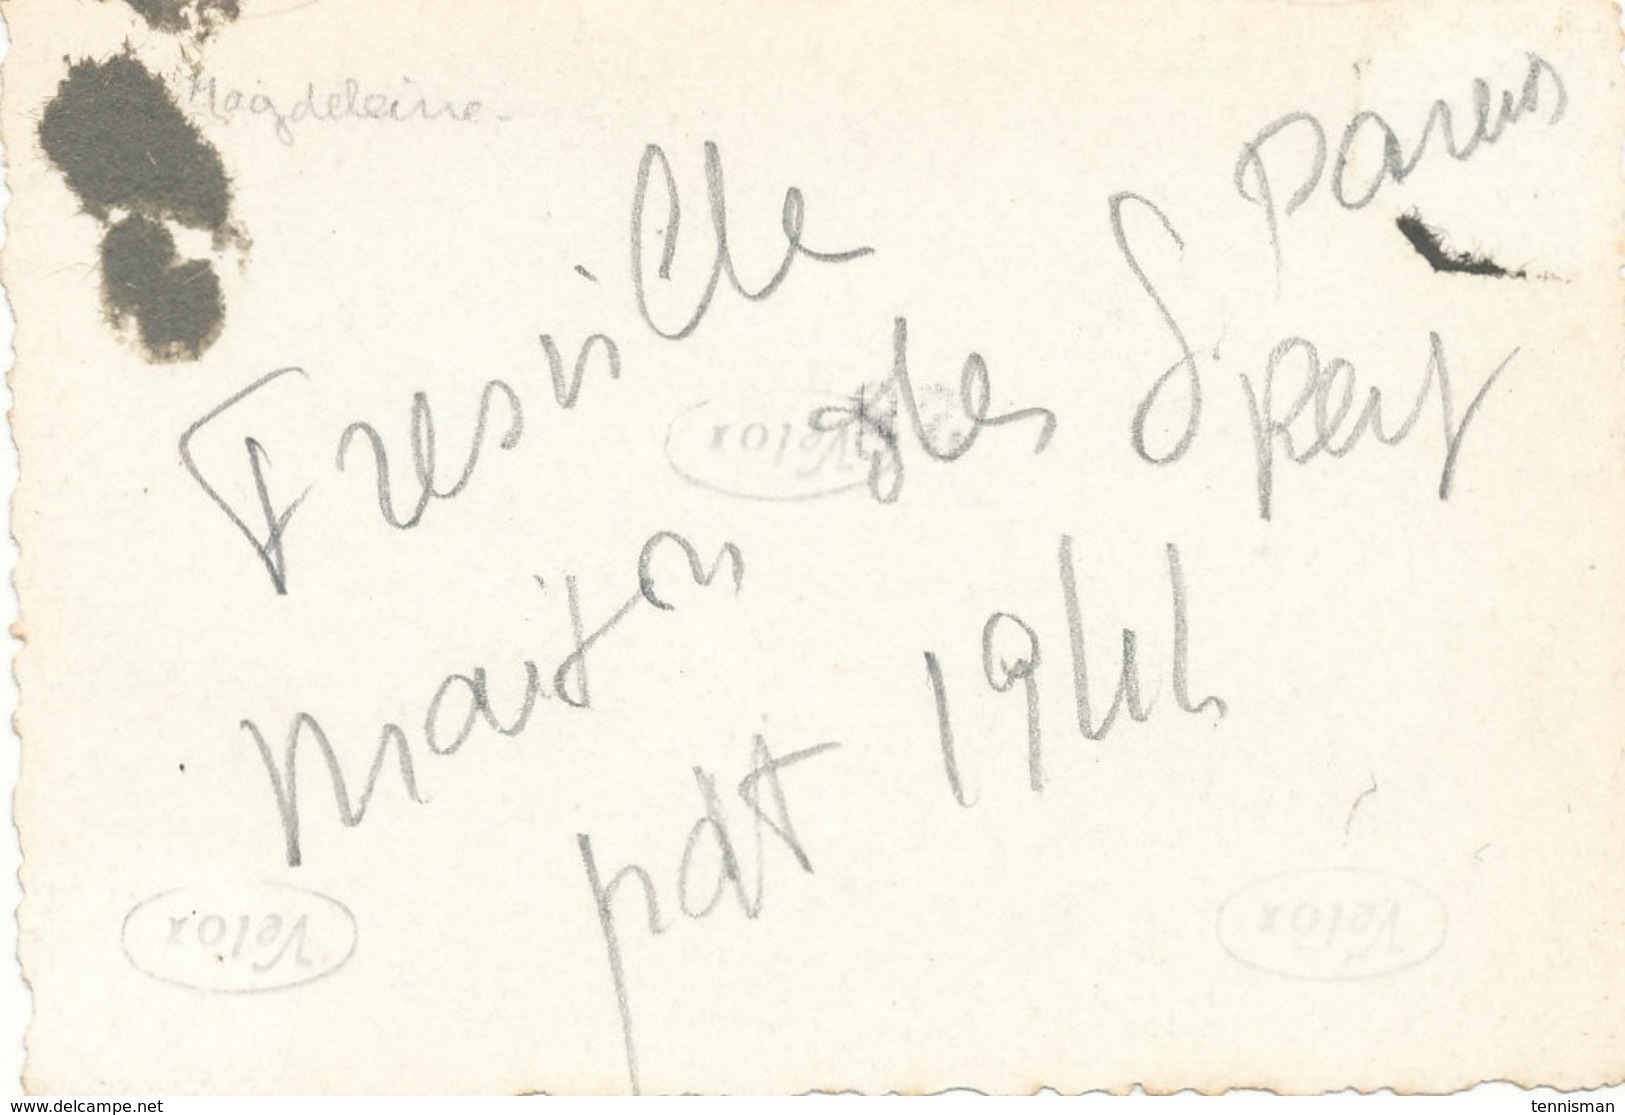 Magdeleine.
Fresville
maison des parents
Spert
pdt 1944
Velox
Velox
Velox
www.delcampe.net
tennisman